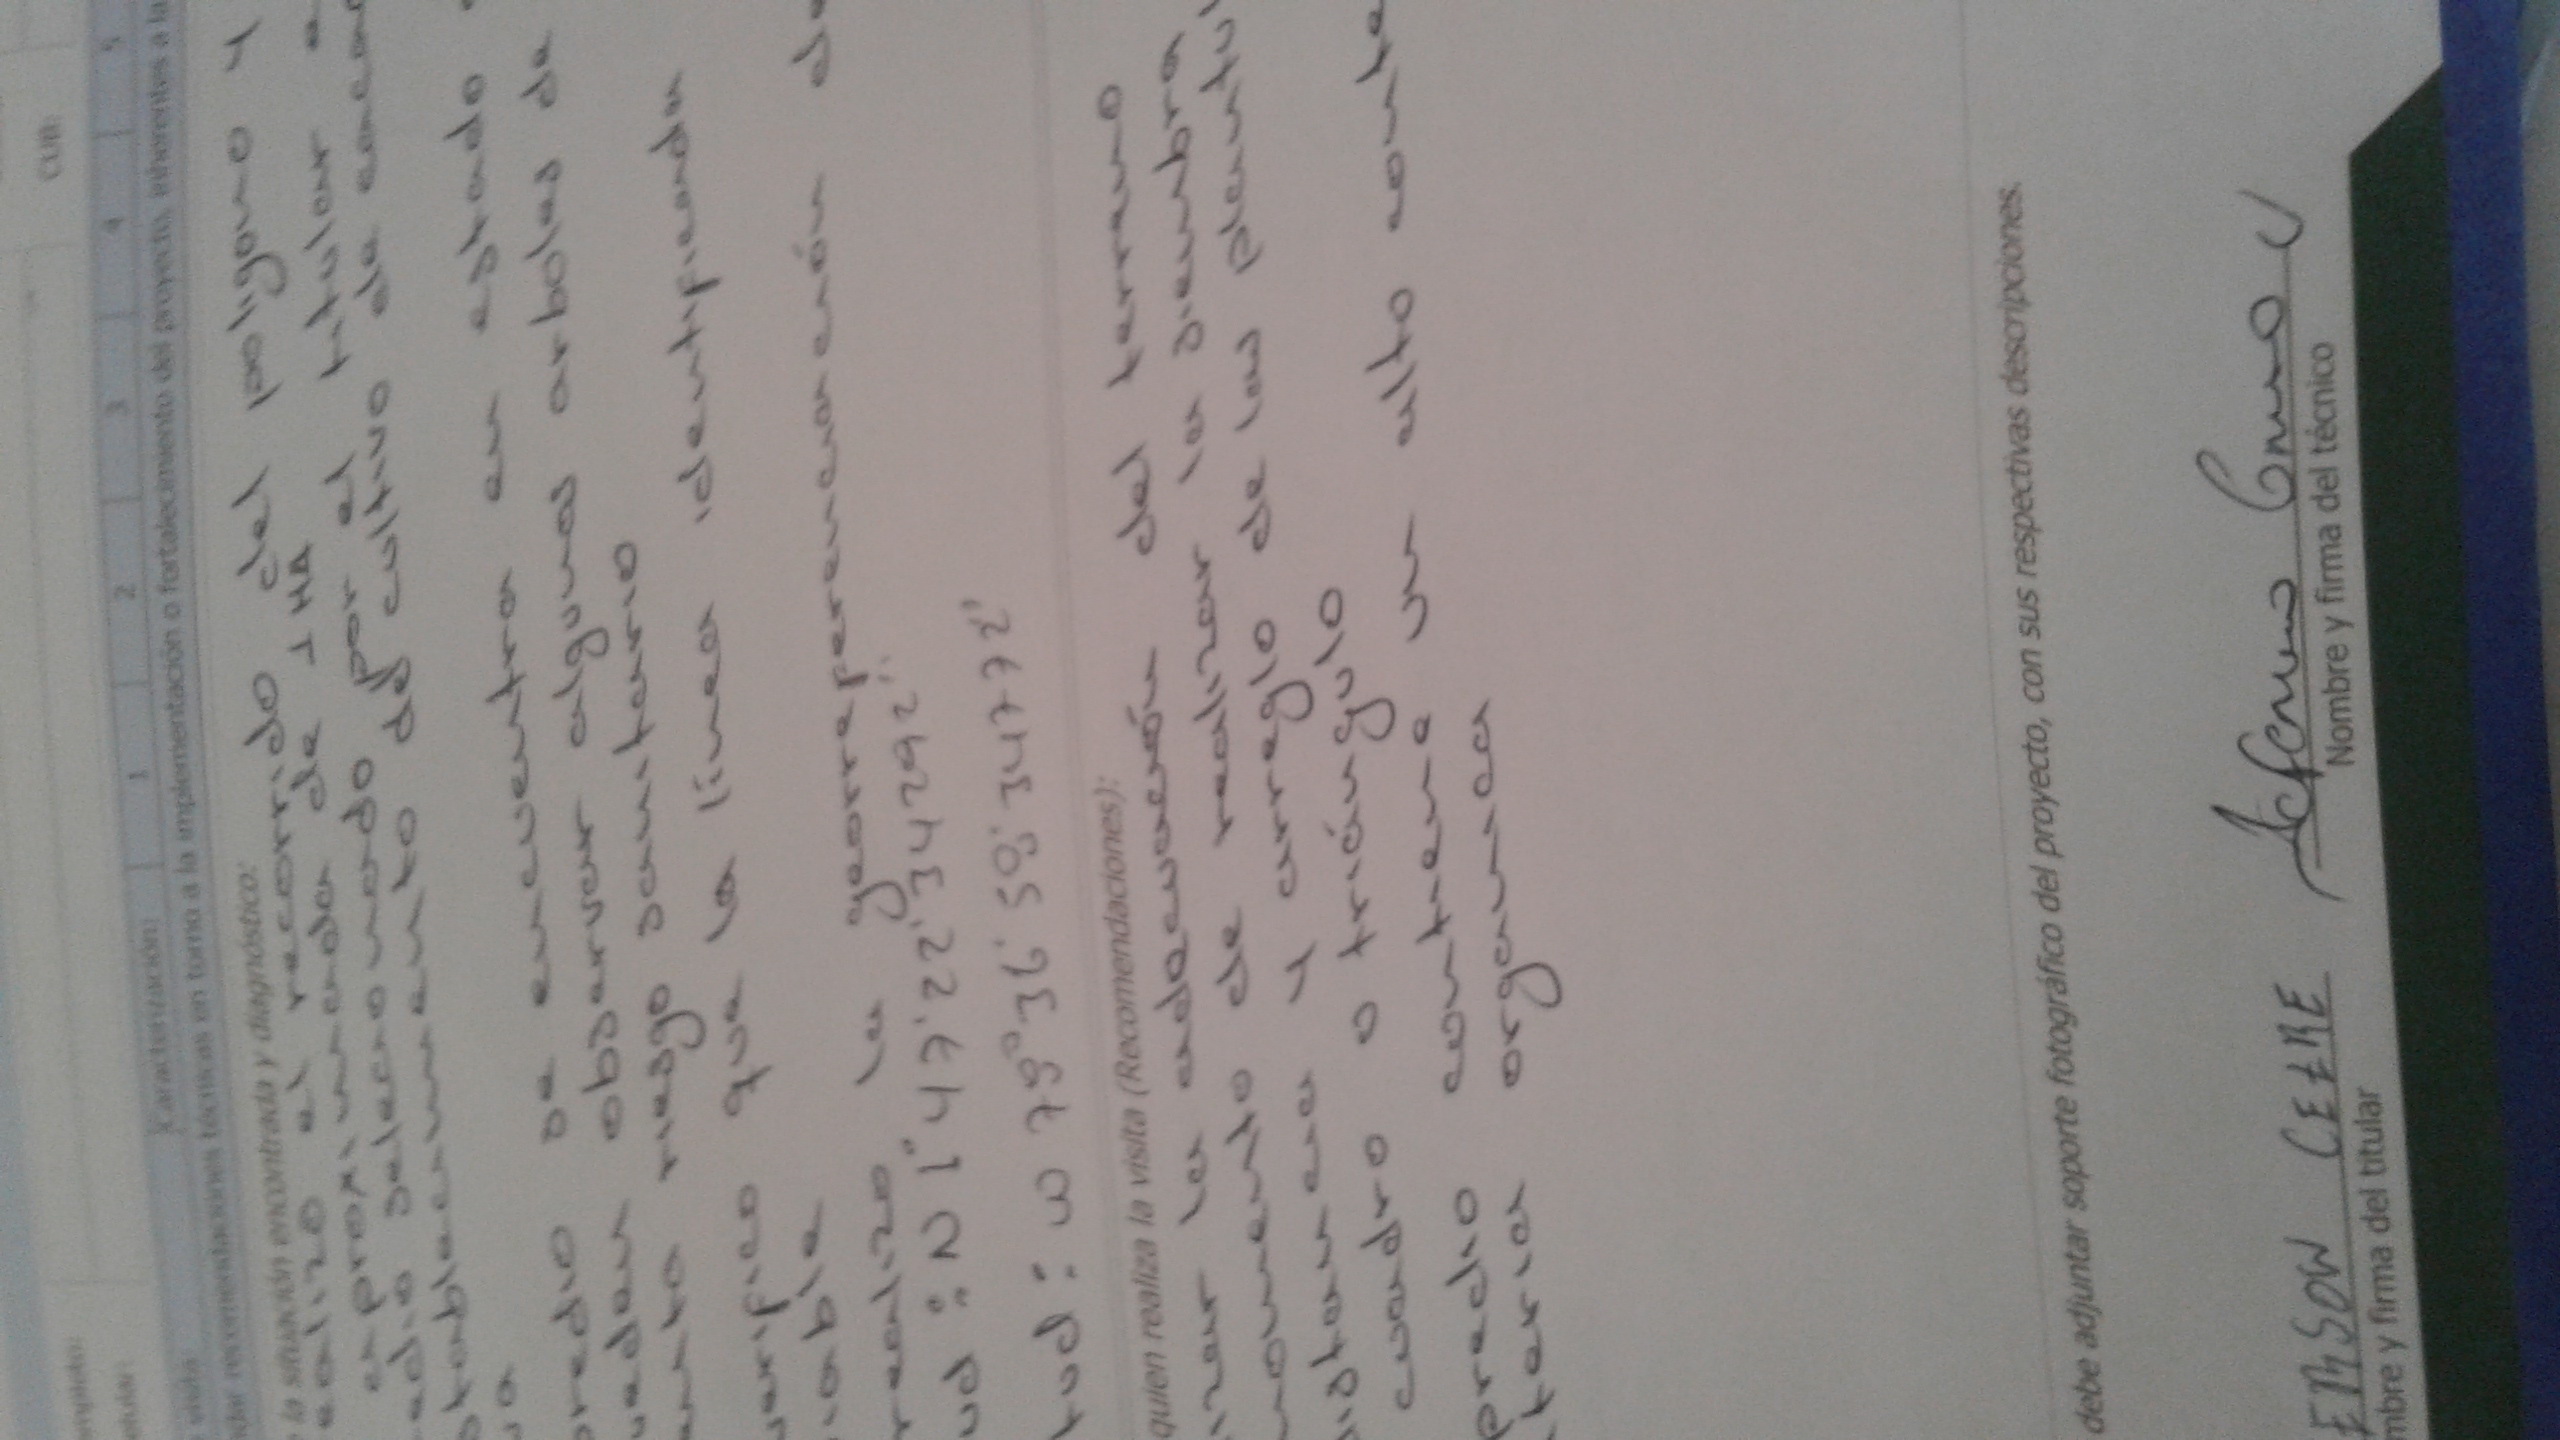 CUB:
(Caracterización) 1 2 3 4 5
recomendaciones técnicas en torno a la implementación o fortalecimiento del proyecto, inherentes a la
la situación encontrada y diagnóstico:
ealizo el recorrido del poligono y
aproximada de 1 HA
edio seleccionado por el titular e
stablecimiento del cultivo de
redio se encuentra en estado
uedan observar algunos arboles de
riesgo sanitario
verifico que la linea identificada
iable
realizo la georreferenciación de
ud: N 1°, 47', 22', 34292''
tud: W 78°, 36', 50', 34772''
quien realiza la visita (Recomendaciones):
izar la adecuación del terreno
momento de realizar la siembra
istancia y arreglo de las plantu
cuadro o triángulo
predio contiene un alto conte
teria organica
debe adjuntar soporte fotográfico del proyecto, con sus respectivas descripciones.
mbre y firma del titular
Nombre y firma del técnico